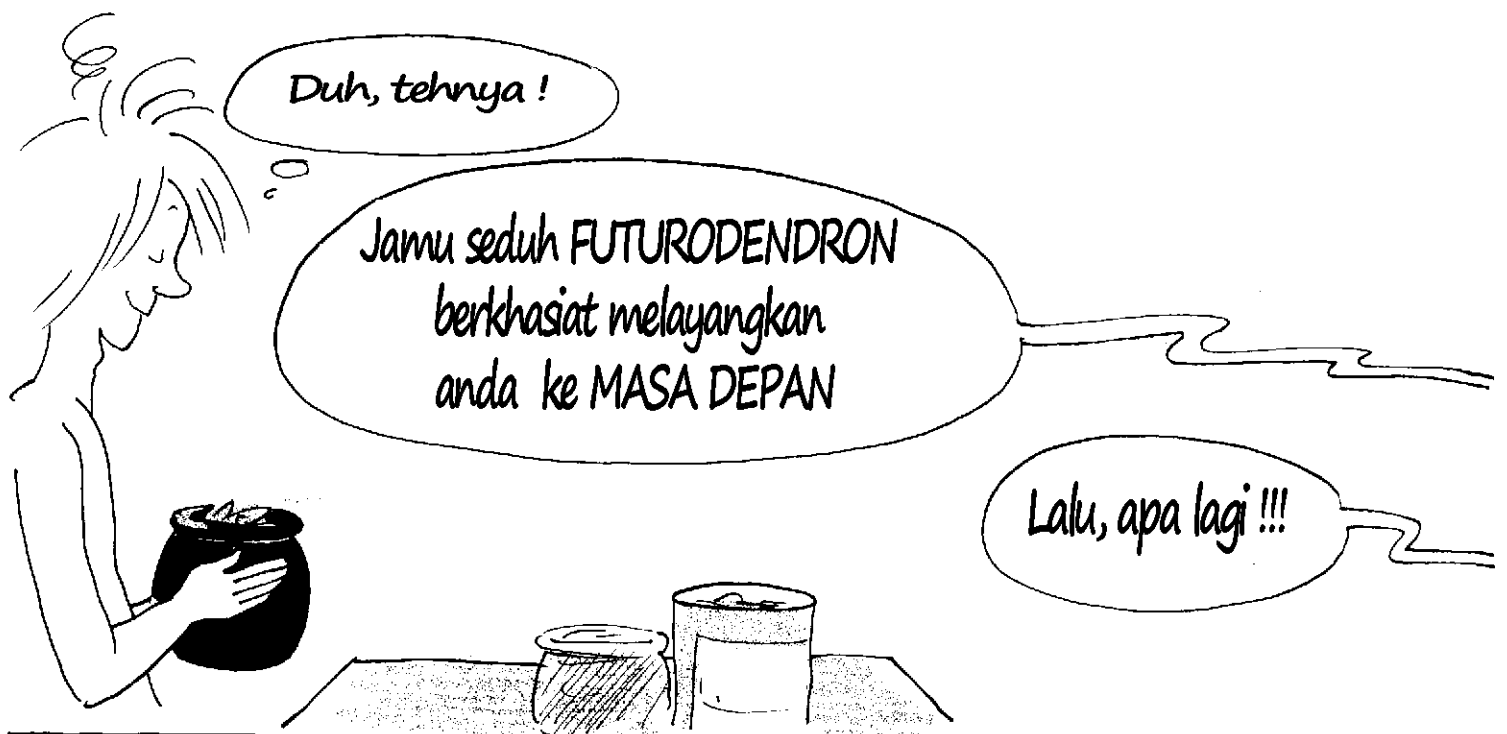 Duh, tehnya !
Jamu seduh FUTURODENDRON
berkhasiat melayangkan
anda ke MASA DEPAN
Lalu, apa lagi !!!